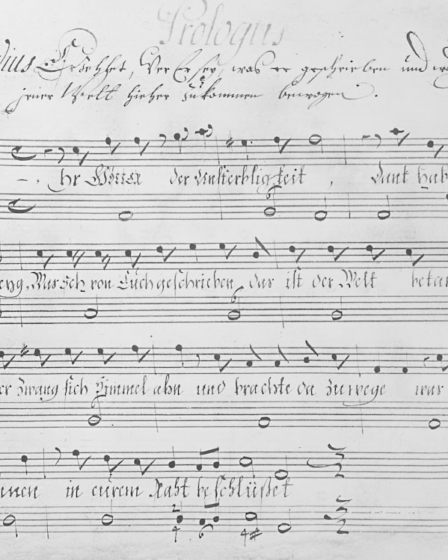 Prologus
dius Erzehlet, Wer Er sey, was er geschrieben und
jener Welt hieher zukommen bewogen.
Ihr Götter der Unsterbligkeit, dank hab
Was Ich von Euch geschrieben dar ist der Welt
er zwang sich Himmel ahn und brachte da zu wege war
in eurem Raht beschlüßet